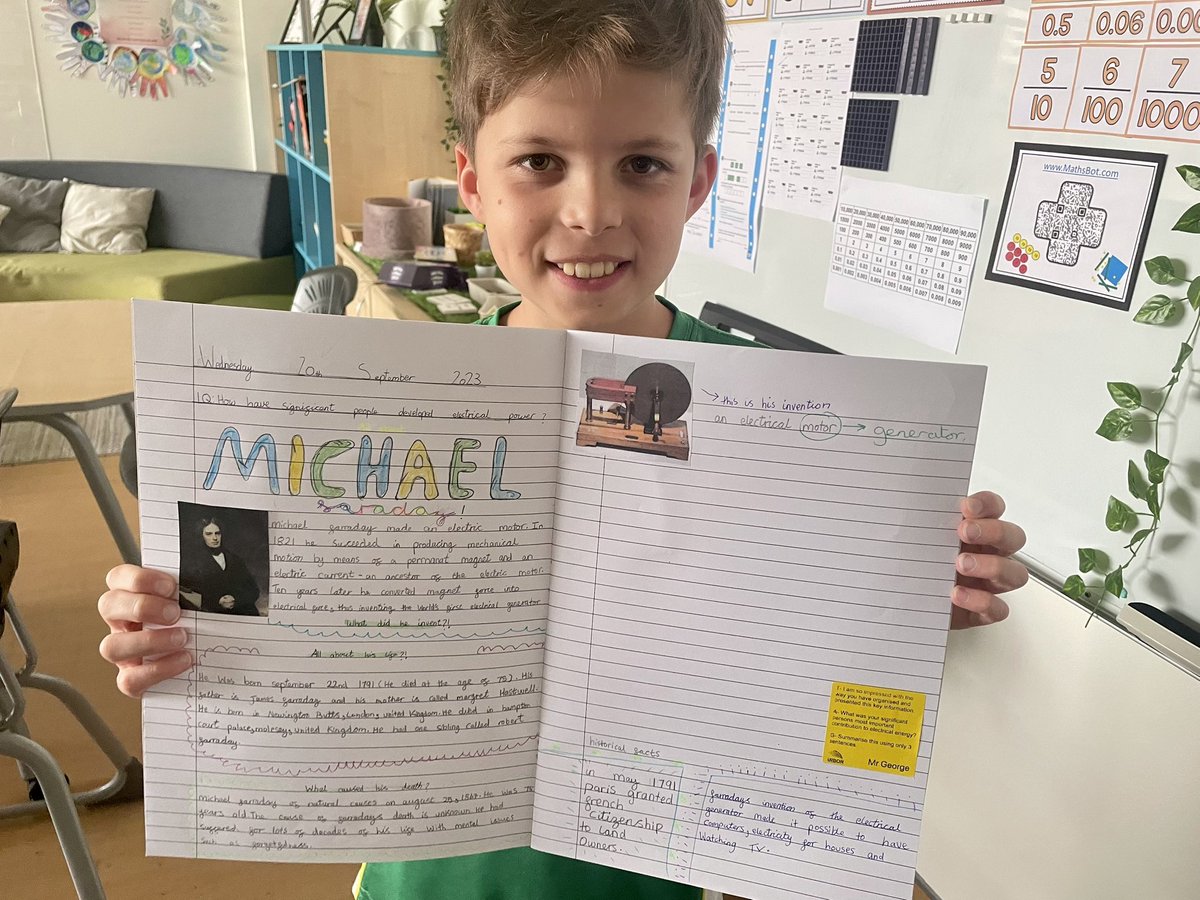 Wednesday 20th September 2023
IQ: How have significant people developed electrical power?
MICHAEL
faraday!
michael farraday made an electric motor. In
1821 he succeeded in producing mechanical
motion by means of a permanat magnet and an
electric current - an ancestor of the electric motor.
Ten years later he converted magnet force into
electrical force, thus inventing the world's first electrical generator
What did he invent?!
All about his life?!
He was born september 22nd 1791 (He died at the age of 75). His
father is James farraday and his mother is called margret Hastwell.
He is born in Newington Butts, London, united Kingdom. He died in hampton
court palace, molesey, united Kingdom. He had one sibling called robert
farraday.
What caused his death?
michael farraday of natural causes on august 25, 1867. He was 75
years old. The cause of farradays death is unknown. He had
suffered for lots of decades of his life with mental issues
such as forgetfulness.
this is his invention
an electrical motor → generator.
historical facts
in may 1791
paris granted
french
citizenship
to land
owners.
faradays invention of the electrical
generator made it possible to have
computers, electricity for houses and
watching TV.
T- I am so impressed with the
way you have organised and
presented this key information.
A- What was your significant
persons most important
contribution to electrical energy?
G- Summarise this using only 3
sentences.
Mr George
0.5 0.06
5/10 6/100 7/1000
www.MathsBot.com
10,000 20,000 30,000 40,000 50,000 60,000 70,000 80,000 90,000
1000 2000 3000 4000 5000 6000 7000 8000 9000
100 200 300 400 500 600 700 800 900
0.1 0.2 0.3 0.4 0.5 0.6 0.7 0.8 0.9
0.01 0.02 0.03 0.04 0.05 0.06 0.07 0.08 0.09
0.001 0.002 0.003 0.004 0.005 0.006 0.007 0.008 0.009